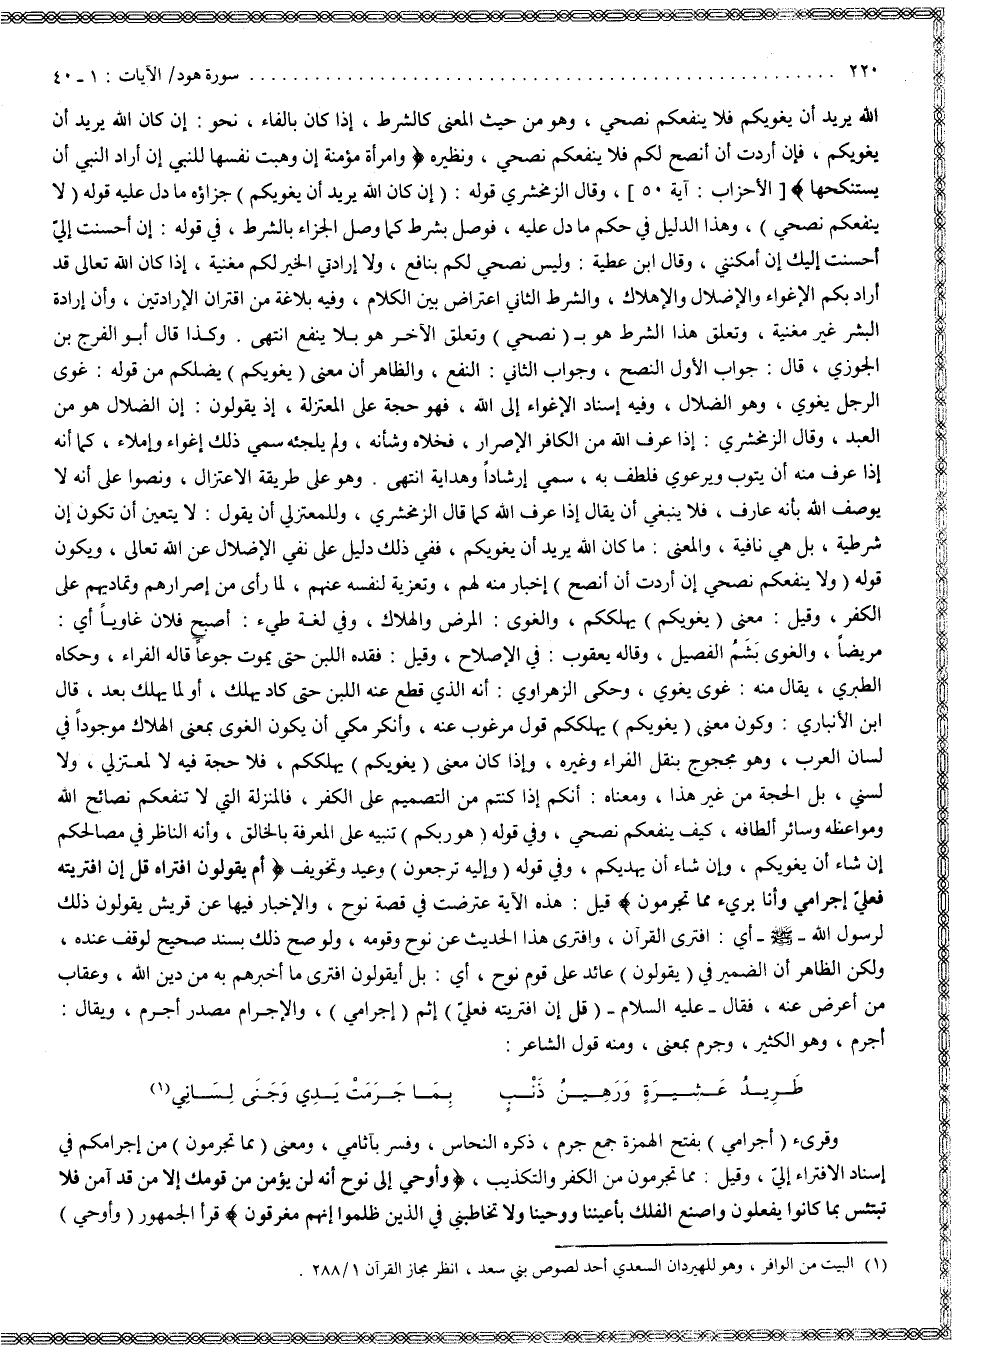 ٢٢٠ ............................................................ سورة هود/ الآيات : ١ ـ ٤٠
الله يريد أن يغويكم فلا ينفعكم نصحي ، وهو من حيث المعنى كالشرط ، إذا كان بالفاء ، نحو : إن كان الله يريد أن
يغويكم ، فإن أردت أن أنصح لكم فلا ينفعكم نصحي ، ونظيره ﴿ وامرأة مؤمنة إن وهبت نفسها للنبي إن أراد النبي أن
يستنكحها ﴾ [ الأحزاب : آية ٥٠ ] ، وقال الزمخشري قوله : ( إن كان الله يريد أن يغويكم ) جزاؤه ما دل عليه قوله ( لا
ينفعكم نصحي ) ، وهذا الدليل في حكم ما دل عليه ، فوصل بشرط كما وصل الجزاء بالشرط ، في قوله : إن أحسنت إليّ
أحسنت إليك إن أمكنني ، وقال ابن عطية : وليس نصحي لكم بنافع ، ولا إرادتي الخير لكم مغنية ، إذا كان الله تعالى قد
أراد بكم الإغواء والإضلال والإهلاك ، والشرط الثاني اعتراض بين الكلام ، وفيه بلاغة من اقتران الإرادتين ، وأن إرادة
البشر غير مغنية ، وتعلق هذا الشرط هو بـ ( نصحي ) وتعلق الآخر هو بلا ينفع انتهى . وكذا قال أبو الفرج بن
الجوزي ، قال : جواب الأول النصح ، وجواب الثاني : النفع ، والظاهر أن معنى ( يغويكم ) يضلكم من قوله : غوى
الرجل يغوي ، وهو الضلال ، وفيه إسناد الإغواء إلى الله ، فهو حجة على المعتزلة ، إذ يقولون : إن الضلال هو من
العبد ، وقال الزمخشري : إذا عرف الله من الكافر الإصرار ، فخلاه وشأنه ، ولم يلجئه سمي ذلك إغواء وإملاء ، كما أنه
إذا عرف منه أن يتوب ويرعوي فلطف به ، سمي إرشاداً وهداية انتهى . وهو على طريقة الاعتزال ، ونصوا على أنه لا
يوصف الله بأنه عارف ، فلا ينبغي أن يقال إذا عرف الله كما قال الزمخشري ، وللمعتزلي أن يقول : لا يتعين أن تكون إن
شرطية ، بل هي نافية ، والمعنى : ما كان الله يريد أن يغويكم ، ففي ذلك دليل على نفي الإضلال عن الله تعالى ، ويكون
قوله ( ولا ينفعكم نصحي إن أردت أن أنصح ) إخبار منه لهم ، وتعزية لنفسه عنهم ، لما رأى من إصرارهم وتماديهم على
الكفر ، وقيل : معنى ( يغويكم ) يهلككم ، والغوى : المرض والهلاك ، وفي لغة طيء : أصبح فلان غاوياً أي :
مريضاً ، والغوى بَشَمُ الفصيل ، وقاله يعقوب : في الإصلاح ، وقيل : فقده اللبن حتى يموت جوعاً قاله الفراء ، وحكاه
الطبري ، يقال منه : غوى يغوي ، وحكى الزهراوي : أنه الذي قطع عنه اللبن حتى كاد يهلك ، أو لما يهلك بعد ، قال
ابن الأنباري : وكون معنى ( يغويكم ) يهلككم قول مرغوب عنه ، وأنكر مكي أن يكون الغوى بمعنى الهلاك موجوداً في
لسان العرب ، وهو محجوج بنقل الفراء وغيره ، وإذا كان معنى ( يغويكم ) يهلككم ، فلا حجة فيه لا لمعتزلي ، ولا
لسني ، بل الحجة من غير هذا ، ومعناه : أنكم إذا كنتم من التصميم على الكفر ، فالمنزلة التي لا تنفعكم نصائح الله
ومواعظه وسائر ألطافه ، كيف ينفعكم نصحي ، وفي قوله ( هو ربكم ) تنبيه على المعرفة بالخالق ، وأنه الناظر في مصالحكم
إن شاء أن يغويكم ، وإن شاء أن يهديكم ، وفي قوله ( وإليه ترجعون ) وعيد وتخويف ﴿ أم يقولون افتراه قل إن افتريته
فعليّ إجرامي وأنا بريء مما تجرمون ﴾ قيل : هذه الآية عترضت في قصة نوح ، والإخبار فيها عن قريش يقولون ذلك
لرسول الله ـ ﷺ ـ أي : افترى القرآن ، وافترى هذا الحديث عن نوح وقومه ، ولو صح ذلك بسند صحيح لوقف عنده ،
ولكن الظاهر أن الضمير في ( يقولون ) عائد على قوم نوح ، أي : بل أيقولون افترى ما أخبرهم به من دين الله ، وعقاب
من أعرض عنه ، فقال ـ عليه السلام ـ ( قل إن افتريته فعليّ ) إثم ( إجرامي ) ، والإجرام مصدر أجرم ، ويقال :
أجرم ، وهو الكثير ، وجرم بمعنى ، ومنه قول الشاعر :
طَرِيدُ عَشِيرَةٍ وَرَهِينُ ذَنْبٍ بِمَا جَرَمَتْ يَدِي وَجَنَى لِسَانِي(١)
وقرىء ( أجرامي ) بفتح الهمزة جمع جرم ، ذكره النحاس ، وفسر بآثامي ، ومعنى ( مما تجرمون ) من إجرامكم في
إسناد الافتراء إليّ ، وقيل : مما تجرمون من الكفر والتكذيب ، ﴿ وأوحي إلى نوح أنه لن يؤمن من قومك إلا من قد آمن فلا
تبتئس بما كانوا يفعلون واصنع الفلك بأعيننا ووحينا ولا تخاطبني في الذين ظلموا إنهم مغرقون ﴾ قرأ الجمهور ( وأوحي )
(١) البيت من الوافر ، وهو للهيردان السعدي أحد لصوص بني سعد ، انظر مجاز القرآن ٢٨٨/١ .